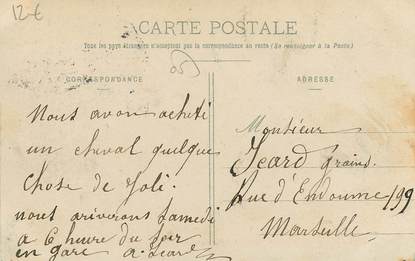 12-€
CARTE POSTALE
Tous les pays étrangers n'acceptent pas la correspondance au recto (Se renseigner à la Poste)
CORRESPONDANCE
Nous avon acheti
un cheval quelque
chose de joli.
nous ariverons Samedi
a 6 heure du soir
en gare a. Icard
ADRESSE
Monsieur
Icard grains.
Rue d'Endoume 199
Marseille